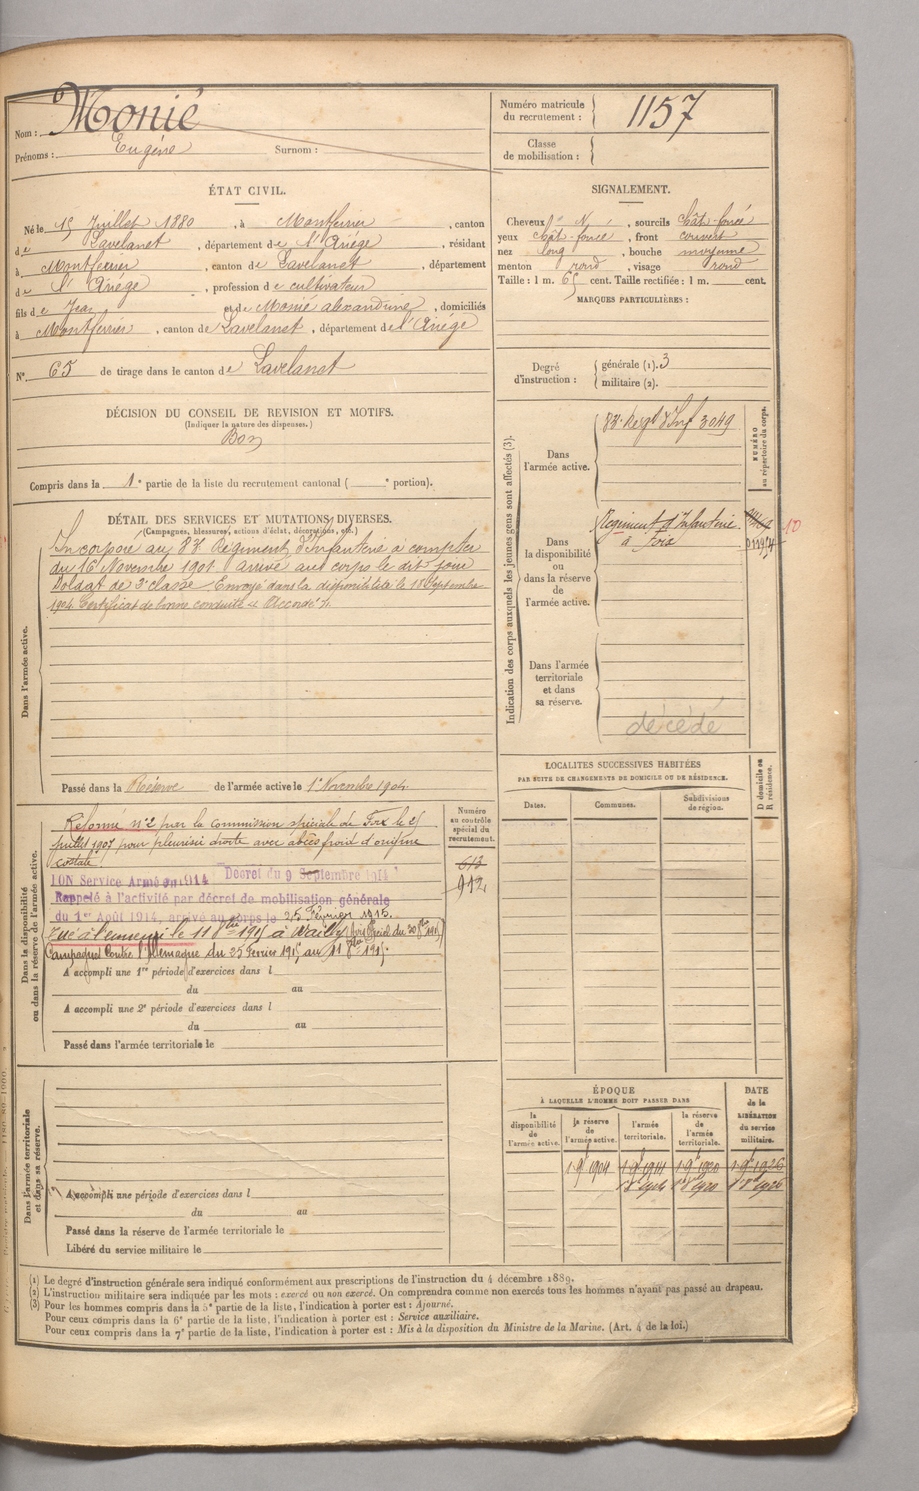 Nom : Monié
Prénoms : Eugène Surnom :
Numéro matricule du recrutement : 1157
Classe de mobilisation :
ÉTAT CIVIL.
Né le 15 Juillet 1880, à Montferrier, canton
de Lavelanet, département de l'Ariége, résidant
à Montferrier, canton de Lavelanet, département
de l'Ariége, profession de cultivateur
fils de Jean et de Monié alexandrine, domiciliés
à Montferrier, canton de Lavelanet, département de l'Ariége
N° 65 de tirage dans le canton de Lavelanet
SIGNALEMENT.
Cheveux N, sourcils Chât-foncé
yeux Chât-foncé, front couvert
nez long, bouche moyenne
menton rond, visage rond
Taille : 1 m. 65 cent. Taille rectifiée : 1 m. cent.
MARQUES PARTICULIÈRES :
Degré d'instruction : générale (1). 3
militaire (2).
DÉCISION DU CONSEIL DE REVISION ET MOTIFS.
(Indiquer la nature des dispenses.)
Bon
Compris dans la 1e partie de la liste du recrutement cantonal ( e portion).
DÉTAIL DES SERVICES ET MUTATIONS DIVERSES.
(Campagnes, blessures, actions d'éclat, décorations, etc.)
Dans l'armée active.
Incorporé au 83e Régiment d'Infanterie à compter
du 16 Novembre 1901 arrivé au corps le dit jour
Soldat de 2e classe. Envoyé dans la disponibilité le 18 Septembre
1904. Certificat de bonne conduite « Accordé ».
Passé dans la Réserve de l'armée active le 1er Novembre 1904.
Indication des corps auxquels les jeunes gens sont affectés (3).
NUMÉRO au répertoire du corps.
Dans l'armée active.
83e Regt d'Inf 3049
Dans la disponibilité ou dans la réserve de l'armée active.
Regiment d'Infanterie
à Foix
10
Dans l'armée territoriale et dans sa réserve.
décédé
LOCALITES SUCCESSIVES HABITÉES
PAR SUITE DE CHANGEMENTS DE DOMICILE OU DE RÉSIDENCE.
Dates. Communes. Subdivisions de région. D domicile ou R résidence.
Dans la disponibilité ou dans la réserve de l'armée active.
Numéro au contrôle spécial du recrutement.
613
912
Réformé n°2 par la commission spéciale de Foix le 25
juillet 1907 pour pleurésie droite avec abcès froid d'origine
costale.
ION Service Armé 1914 Decret du 9 Septembre 1914
Rappelé à l'activité par décret de mobilisation générale
du 1er Août 1914, arrivé au corps le 25 Février 1915.
Tué à l'ennemi le 11 8bre 1915 à Wailly
Campagnes Contre l'Allemagne du 25 Fevrier 1915 au 11 8bre 1915.
A accompli une 1re période d'exercices dans l
du au
A accompli une 2e période d'exercices dans l
du au
Passé dans l'armée territoriale le
Dans l'armée territoriale et dans sa réserve.
A accompli une période d'exercices dans l
du au
Passé dans la réserve de l'armée territoriale le
Libéré du service militaire le
ÉPOQUE
À LAQUELLE L'HOMME DOIT PASSER DANS
la disponibilité de l'armée active. la réserve de l'armée active. l'armée territoriale. la réserve de l'armée territoriale. DATE de la LIBÉRATION du service militaire.
1 9bre 1904 1 9bre 1914 1 9bre 1920 1 9bre 1926
(1) Le degré d'instruction générale sera indiqué conformément aux prescriptions de l'instruction du 4 décembre 1889.
(2) L'instruction militaire sera indiquée par les mots : exercé ou non exercé. On comprendra comme non exercés tous les hommes n'ayant pas passé au drapeau.
(3) Pour les hommes compris dans la 5e partie de la liste, l'indication à porter est : Ajourné.
Pour ceux compris dans la 6e partie de la liste, l'indication à porter est : Service auxiliaire.
Pour ceux compris dans la 7e partie de la liste, l'indication à porter est : Mis à la disposition du Ministre de la Marine. (Art. 4 de la loi.)